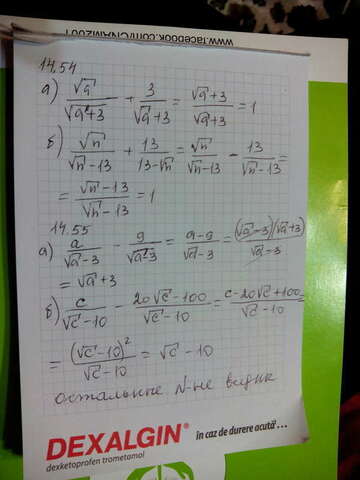 www.facebook.com/CNAM2001
14.54
а) √a/√a+3 + 3/√a+3 = √a+3/√a+3 = 1
б) √n/√n-13 + 13/13-√n = √n/√n-13 - 13/√n-13 =
= √n-13/√n-13 = 1
14.55
а) a/√a-3 - 9/√a-3 = a-9/√a-3 = (√a-3)(√a+3)/√a-3
= √a+3
б) c/√c-10 - 20√c-100/√c-10 = c-20√c+100/√c-10 =
= (√c-10)²/√c-10 = √c-10
остальные N-не видны
DEXALGIN®
în caz de durere acută* ...
dexketoprofen trometamol